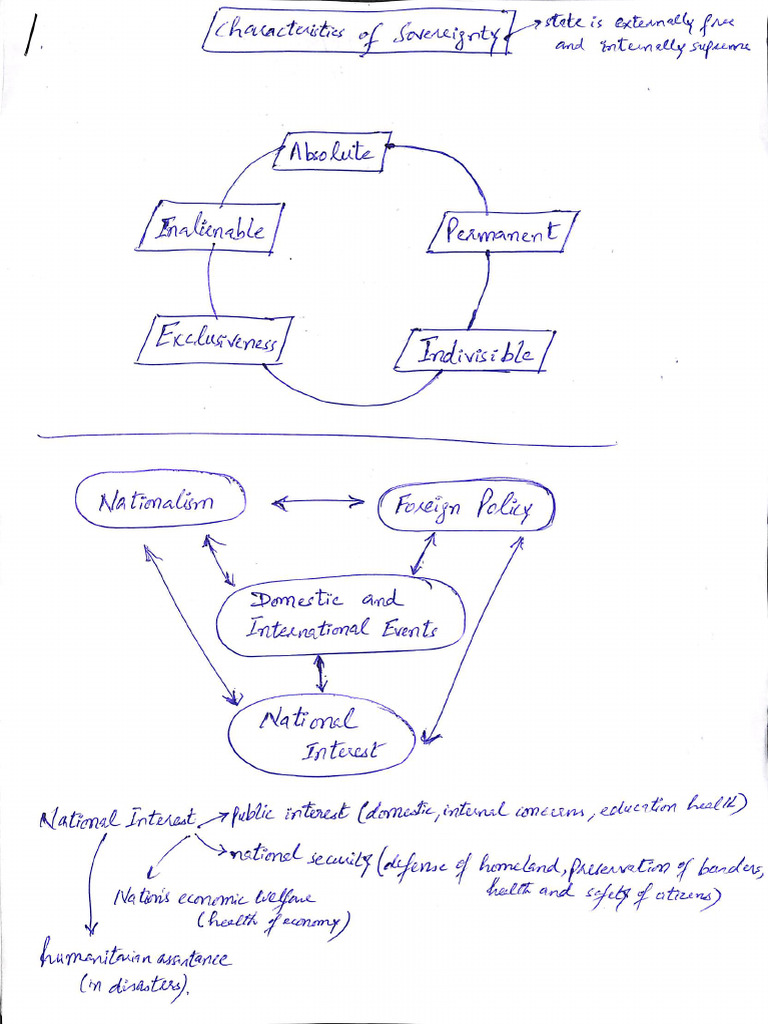 1.
Characteristics of Sovereignty
state is externally free
and internally supreme
Absolute
Inalienable
Permanent
Exclusiveness
Indivisible
Nationalism
Foreign Policy
Domestic and
International Events
National
Interest
National Interest
public interest (domestic, internal concerns, education health)
national security (defense of homeland, preservation of borders,
health and safety of citizens)
Nation's economic welfare
(health of economy)
humanitarian assistance
(in disasters).